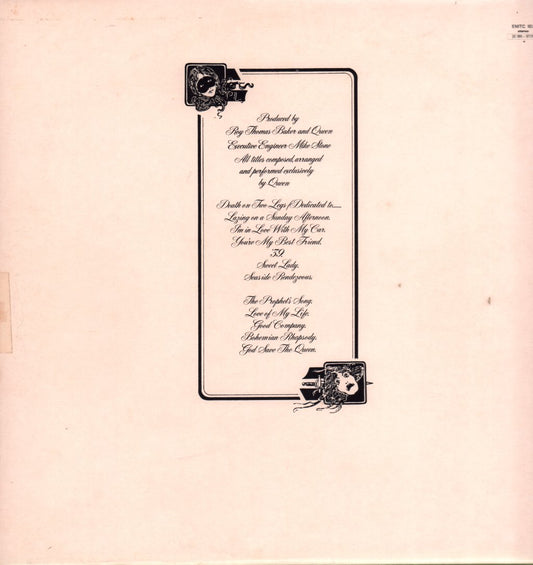 EMTC 103
stereo
Produced by
Roy Thomas Baker and Queen
Executive Engineer Mike Stone
All titles composed, arranged
and performed exclusively
by Queen
Death on Two Legs (Dedicated to......
Lazing on a Sunday Afternoon.
I'm in Love With My Car.
You're My Best Friend.
'39.
Sweet Lady.
Seaside Rendezvous.
The Prophet's Song.
Love of My Life.
Good Company.
Bohemian Rhapsody.
God Save The Queen.